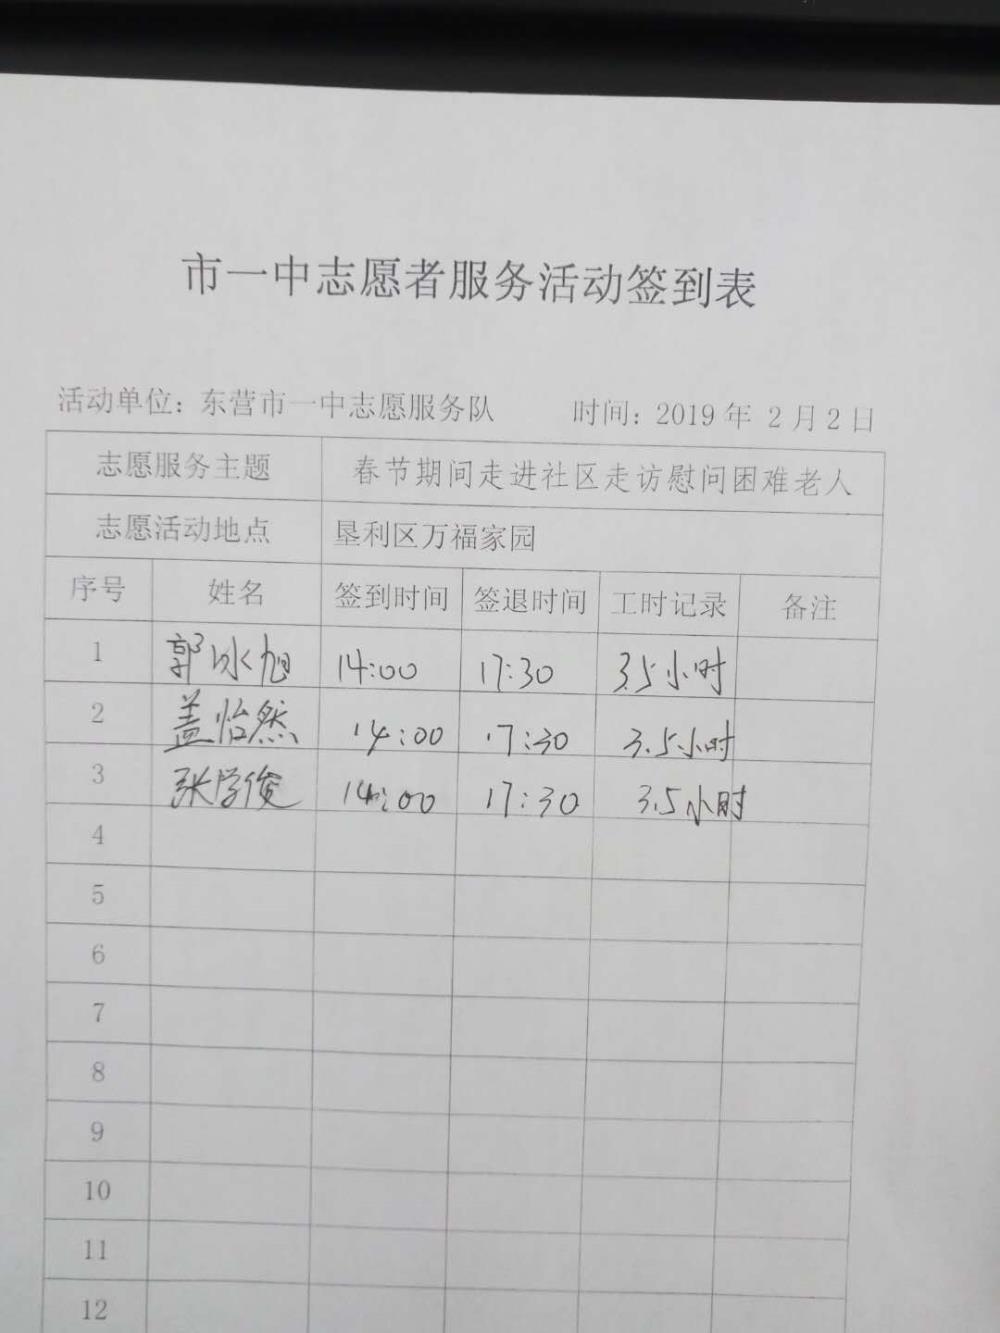 市一中志愿者服务活动签到表
活动单位：东营市一中志愿服务队 时间：2019 年 2 月 2 日
志愿服务主题 春节期间走进社区走访慰问困难老人
志愿活动地点 垦利区万福家园
序号 姓名 签到时间 签退时间 工时记录 备注
1 郭冰旭 14:00 17:30 3.5小时
2 盖怡然 14:00 17:30 3.5小时
3 张学俊 14:00 17:30 3.5小时
4
5
6
7
8
9
10
11
12